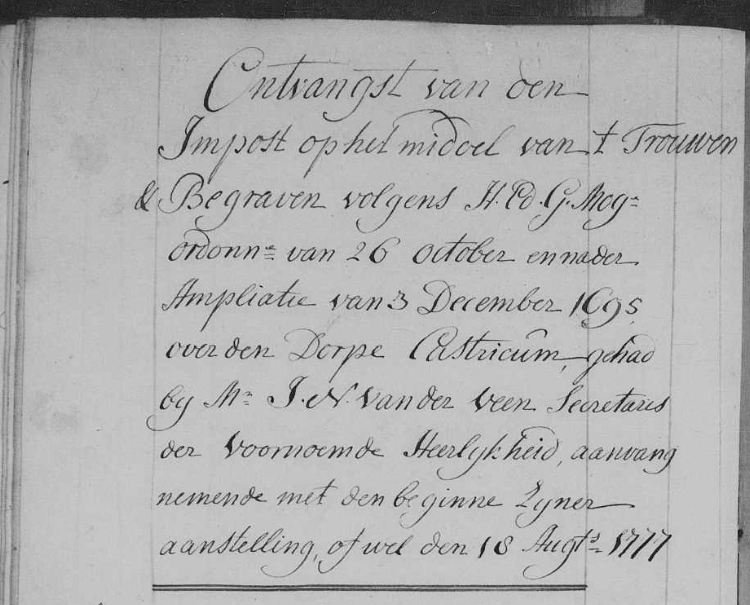 Ontvangst van den
Impost op het middel van 't Trouwen
& Begraven volgens H. Ed. G. Mog=
ordonn= van 26 october en nader
Ampliatie van 3 December 1695
over den Dorpe Castricum, gehad
by Mr= J. N. van der Veen Secretaris
der voornoemde Heerlykheid, aanvang
nemende met den beginne Zyner
aanstelling, of wel den 18 Augts= 1777